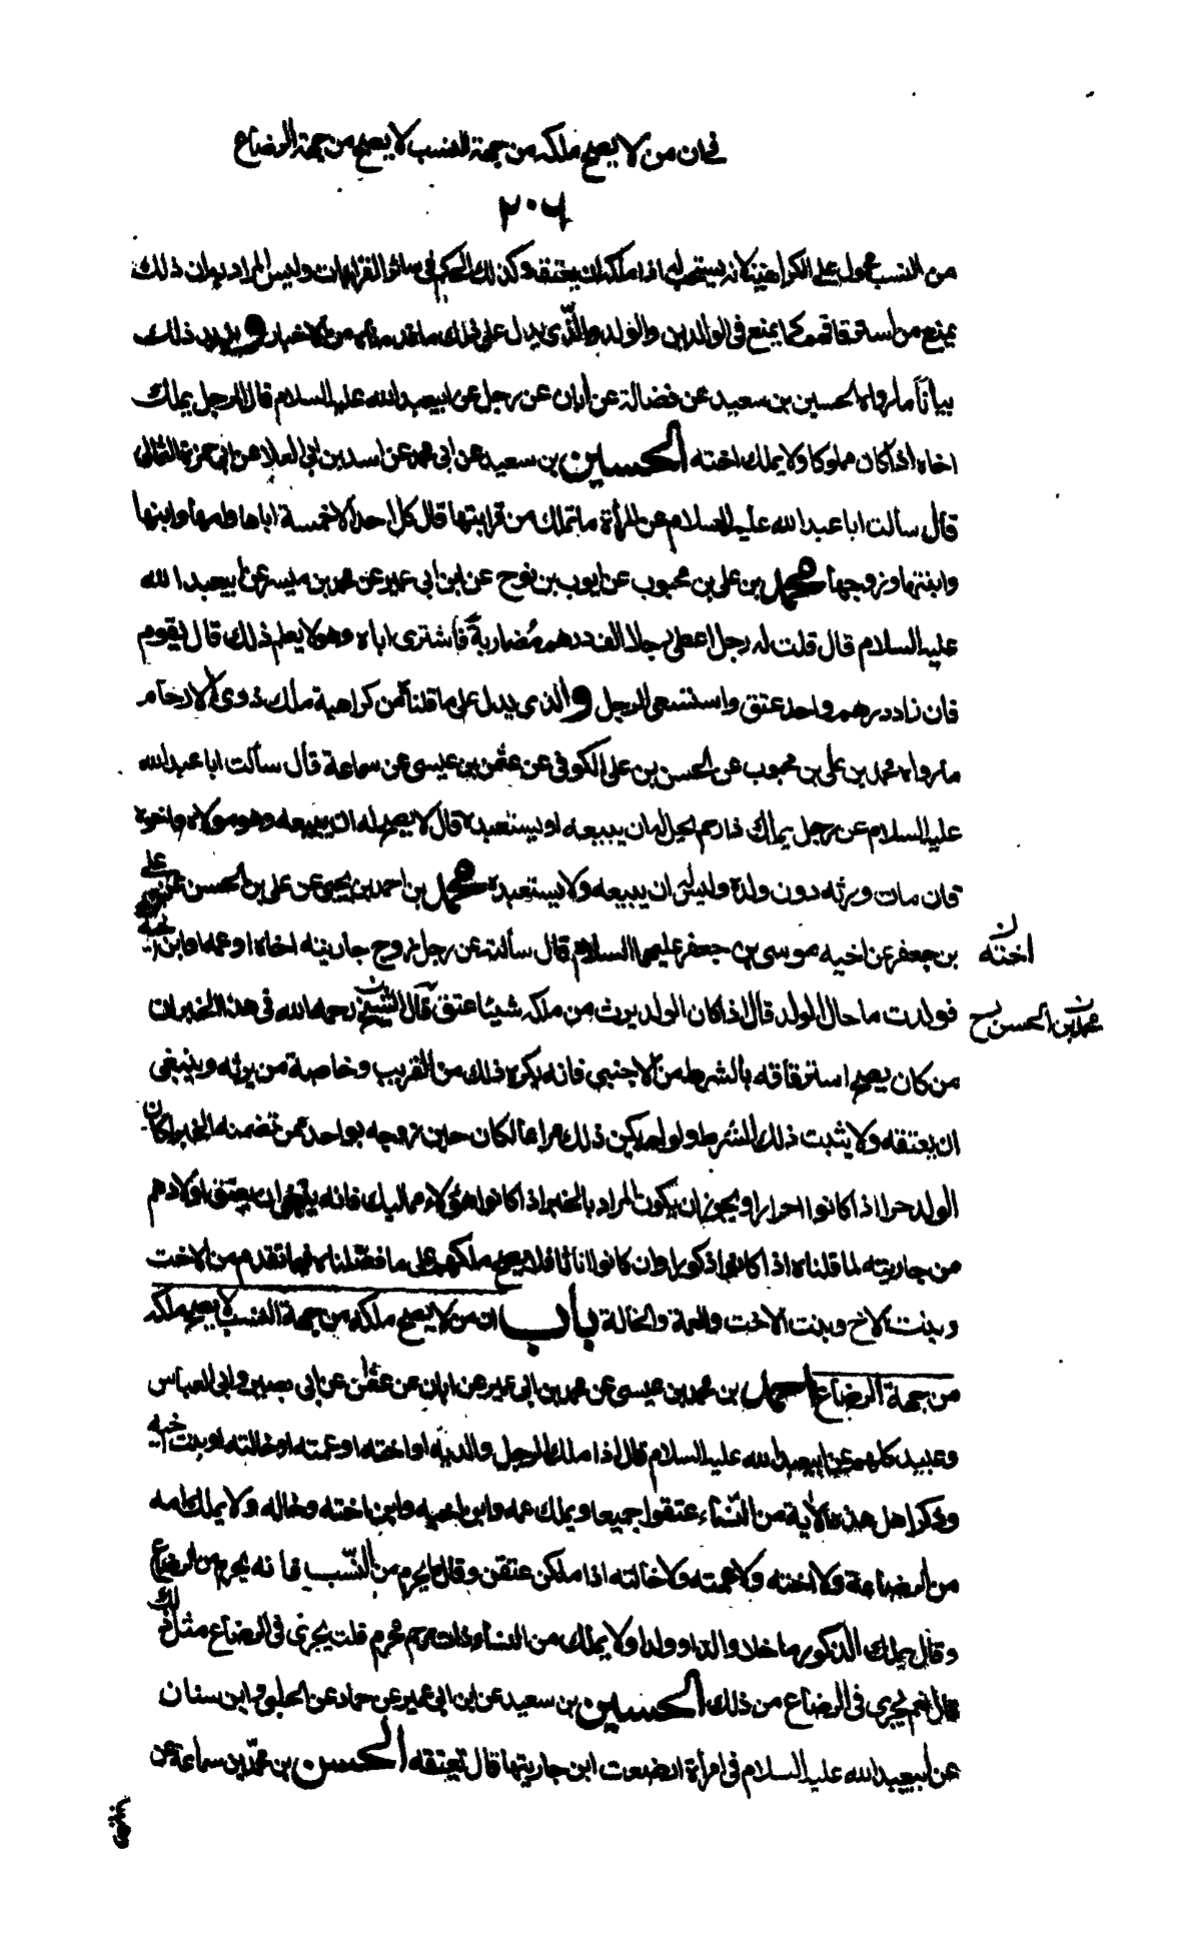 فى ان من لا يصح ملكه من جهة النسب لا يصح من جهة الرضاع
٢٠٦
من النسب محمول على الكراهية لانه يستحب له اذا ملكه ان يعتقه وكذلك الحكم فى سائر القرابات وليس المراد به ان ذلك
يمنع من استرقاقهم كما يمنع فى الوالدين والولد والذى يدل على ذلك ما قدمناه من الاخبار ويزيد ذلك
بيانا ما رواه الحسين بن سعيد عن فضالة عن ابان عن رجل عن ابيعبد الله عليه السلام قال الرجل يملك
اخاه اذا كان مملوكا ولا يملك اخته الحسين بن سعيد عن ابى محمد عن اسد بن ابى العلا عن ابى حمزة الثمالى
قال سألت ابا عبد الله عليه السلام عن المرأة ما تملك من قرابتها قال كل احد الا خمسة اباها وامها وابنها
وابنتها وزوجها محمد بن على بن محبوب عن ايوب بن نوح عن ابن ابى عمير عن محمد بن ميسر عن ابيعبد الله
عليه السلام قال قلت له رجل اعطى رجلا الف درهم مضاربة فاشترى اباه وهو لا يعلم ذلك قال يقوم
فان زاد درهم واحد عتق واستسعى الرجل والذى يدل على ما قلناه من كراهية ملك ذوى الارحام
ما رواه محمد بن على بن محبوب عن الحسن بن على الكوفى عن عثمن بن عيسى عن سماعة قال سألت ابا عبد الله
عليه السلام عن رجل يملك ذا رحم يحل له ان يبيعه او يستعبده قال لا يصح له ان يبيعه وهو مولاه واخوه
فان مات ورثه دون ولده وليس له ان يبيعه ولا يستعبده محمد بن احمد بن يحيى عن على بن الحسن عن على
بن جعفر عن اخيه موسى بن جعفر عليهما السلام قال سألته عن رجل زوج جاريته اخاه او عمه او ابن اخيه
اخته ن
فولدت ما حال الولد قال اذا كان الولد يرث من ملكه شيئا عتق قال الشيخ رحمه الله فى هذا الخبر ان
محمد بن الحسن ن
من كان يصح استرقاقه بالشرط من الاجنبى فانه يكره ذلك من القريب وخاصة من يرثه وينبغى
ان يعتقه ولا يثبت ذلك الشرط ولو لم يكن ذلك مراعا لكان حين تزوجه بواحد ممن تضمنه الخبر كان
الولد حرا اذا كانوا احرارا ويجوز ان يكون المراد بالخبر اذا كانوا هؤلاء مماليك فانه ينبغى ان يعتق اولادهم
من جاريته لما قلناه اذا كانوا ذكورا وان كانوا اناثا فلا يصح ملكهم على ما فصلناه فيما تقدم من الاخت
وبنت الاخ وبنت الاخت والعمة والخالة باب ان من لا يصح ملكه من جهة النسب لا يصح ملكه
من جهة الرضاع احمد بن محمد بن عيسى عن محمد بن ابى عمير عن ابان عن عثمان عن ابى بصير وابى العباس
وعبيد كلهم عن ابيعبد الله عليه السلام قال اذا ملك الرجل والديه او اخته او عمته او خالته او بنت اخيه
وذكر اهل هذه الاية من النساء عتقوا جميعا ويملك عمه وابن اخيه وابن اخته وخاله ولا يملك امه
من الرضاعة ولا اخته ولا عمته ولا خالته اذا ملكن عتقن وقال ما يحرم من النسب فانه يحرم من الرضاع
وقال يملك الذكور ما خلا والدا وولدا ولا يملك من النساء ذات رحم محرم قلت يجرى فى الرضاع مثل ذلك
قال نعم يجرى فى الرضاع من ذلك الحسين بن سعيد عن ابن ابى عمير عن حماد عن الحلبى وابن سنان
عن ابيعبد الله عليه السلام فى امرأة ارضعت ابن جاريتها قال تعتقه الحسن بن محمد بن سماعة عن